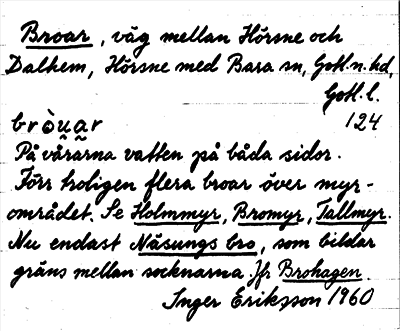 Broar, väg mellan Hörsne och
Dalhem, Hörsne med Bara sn, Gotl. n. hd,
Gotl. l.
124
bròu̯ar
På vårarna vatten på båda sidor.
Förr troligen flera broar över myr-
området. Se Holmmyr, Bromyr, Tallmyr.
Nu endast Näsungs bro, som bildar
gräns mellan socknarna. Jfr Brohagen.
Inger Eriksson 1960